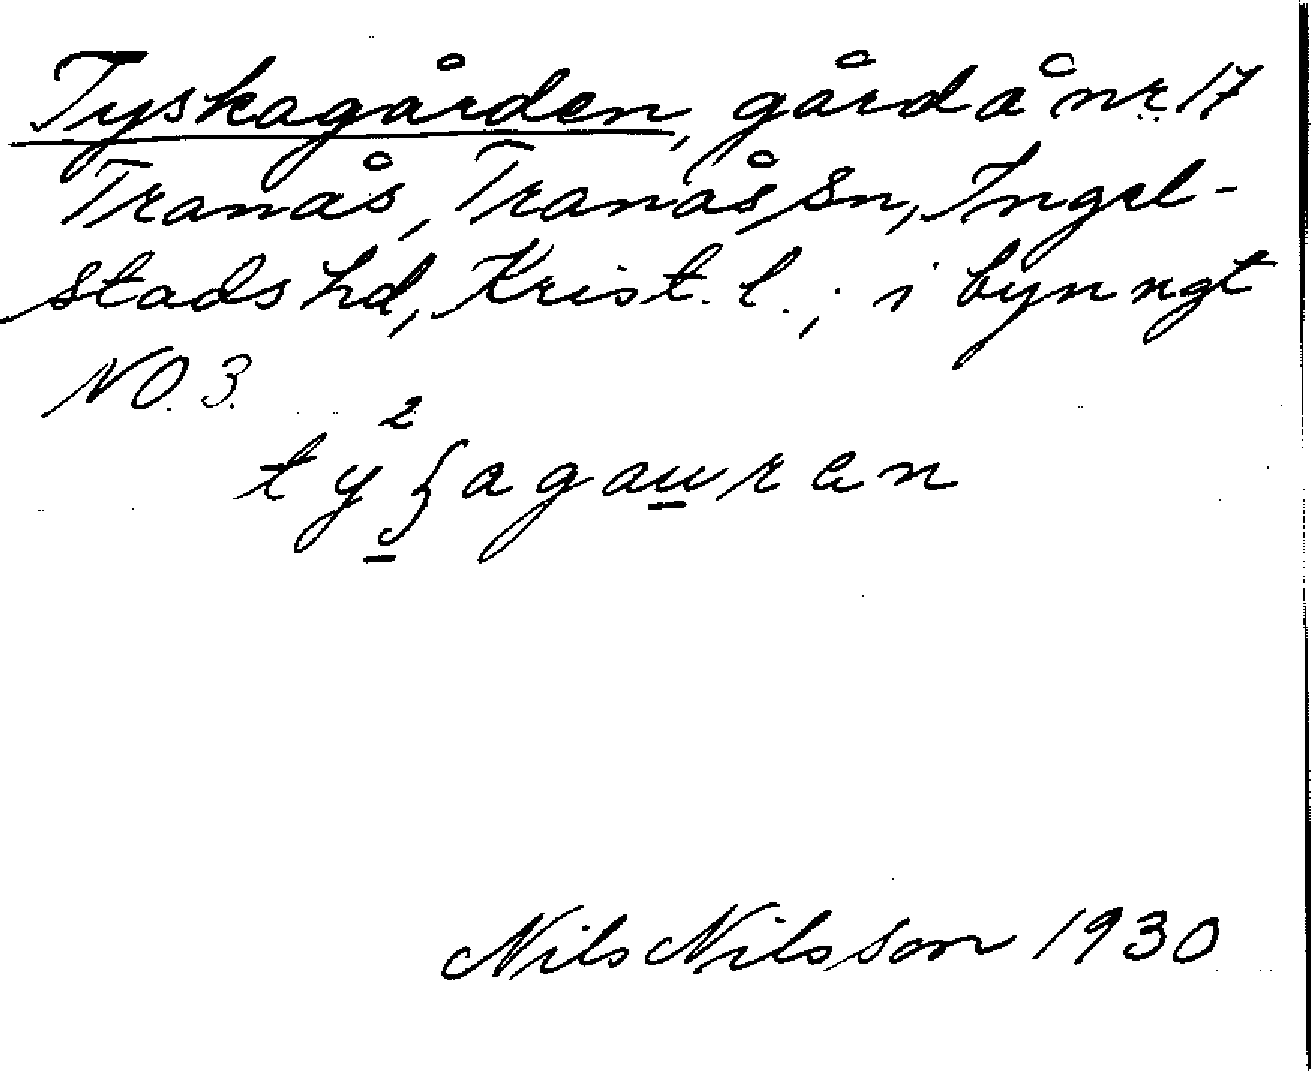 Tyskagården, gård å nr 17
Tranås, Tranås sn, Ingel-
stads hd, Krist. l.; i byn ngt
NO. 3.
Nils Nilsson 1930